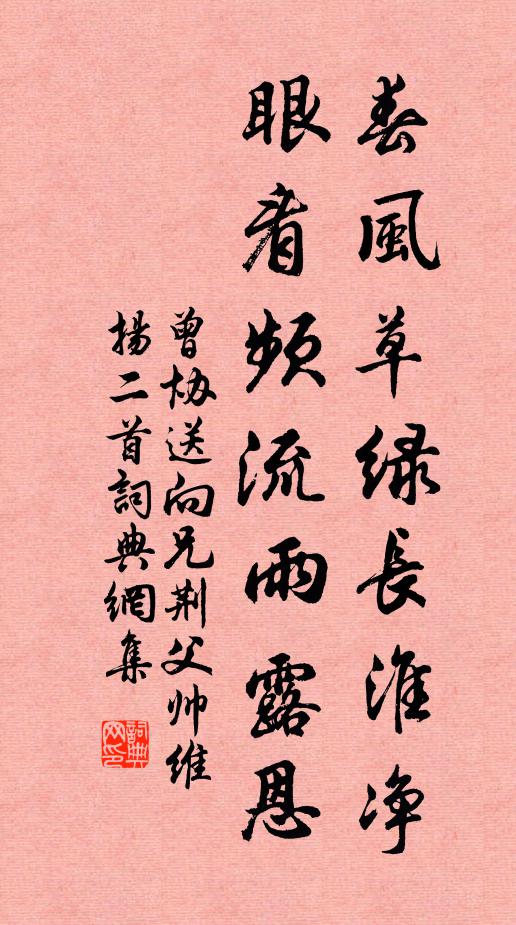 春風草緑長淮净
眼看頻流雨露恩
曾協送向兄荆父帅維
揚二首詞典網集
詞典
网印